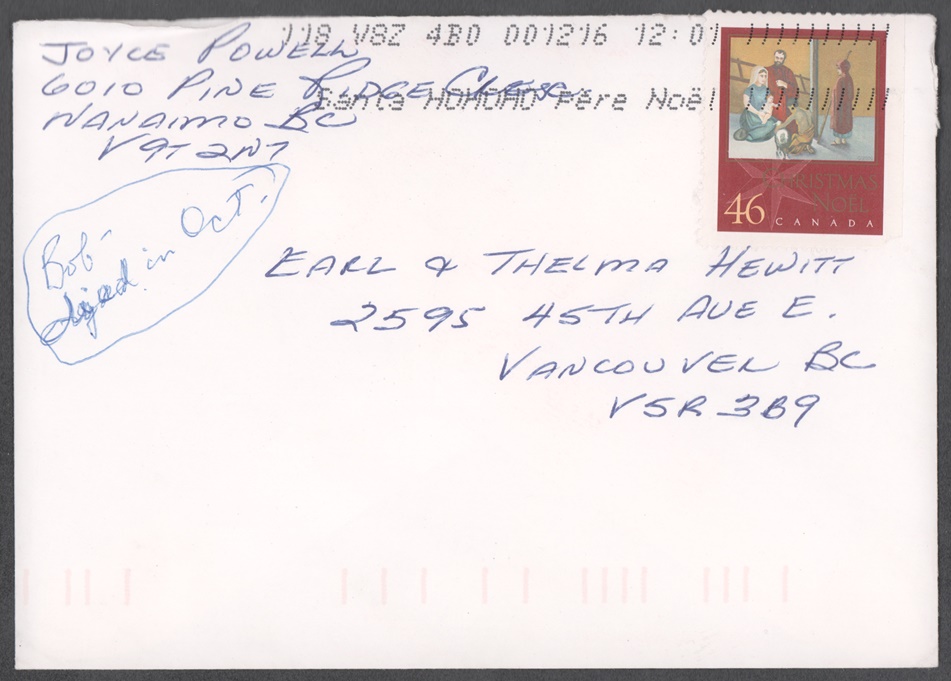 JOYCE POWELL
6010 PINE RIDGE CRES.
NANAIMO BC
V9T 2N7
118 V8Z 4B0 001216 12:01
Santa HOHOHO Père Noël
CHRISTMAS
NOËL
46 CANADA
Bob -
died in Oct.
EARL & THELMA HEWITT
2595 45TH AVE E.
VANCOUVER BC
V5R 3B9